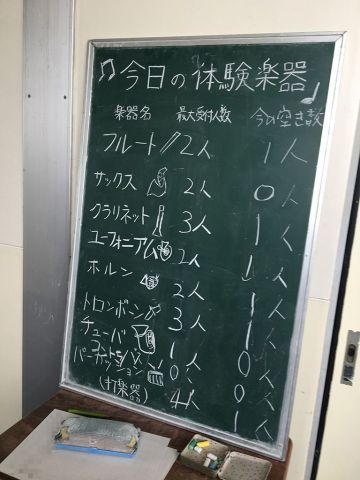 今日の体験楽器
楽器名 最大受付人数 今の空き数
フルート 2人 1人
サックス 2人 0人
クラリネット 3人 1人
ユーフォニアム 2人 1人
ホルン 2人 1人
トロンボーン 3人 1人
チューバ 1人 0人
0人 0人
パーカッション
(打楽器) 4人 1人